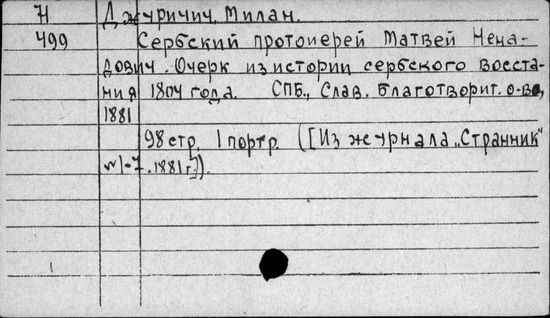 Н Джуричич, Милан.
499 Сербский протоиерей Матвей Нена-
дович. Очерк из истории сербского восста-
ния 1804 года. СПБ., Слав. Благотворит. о-во,
1881
98 стр. 1 портр. ([Из журнала „Странник"
№ 1-7. 1881 г.]).